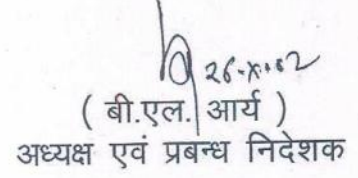 26-X-02
( बी.एल. आर्य )
अध्यक्ष एवं प्रबन्ध निदेशक